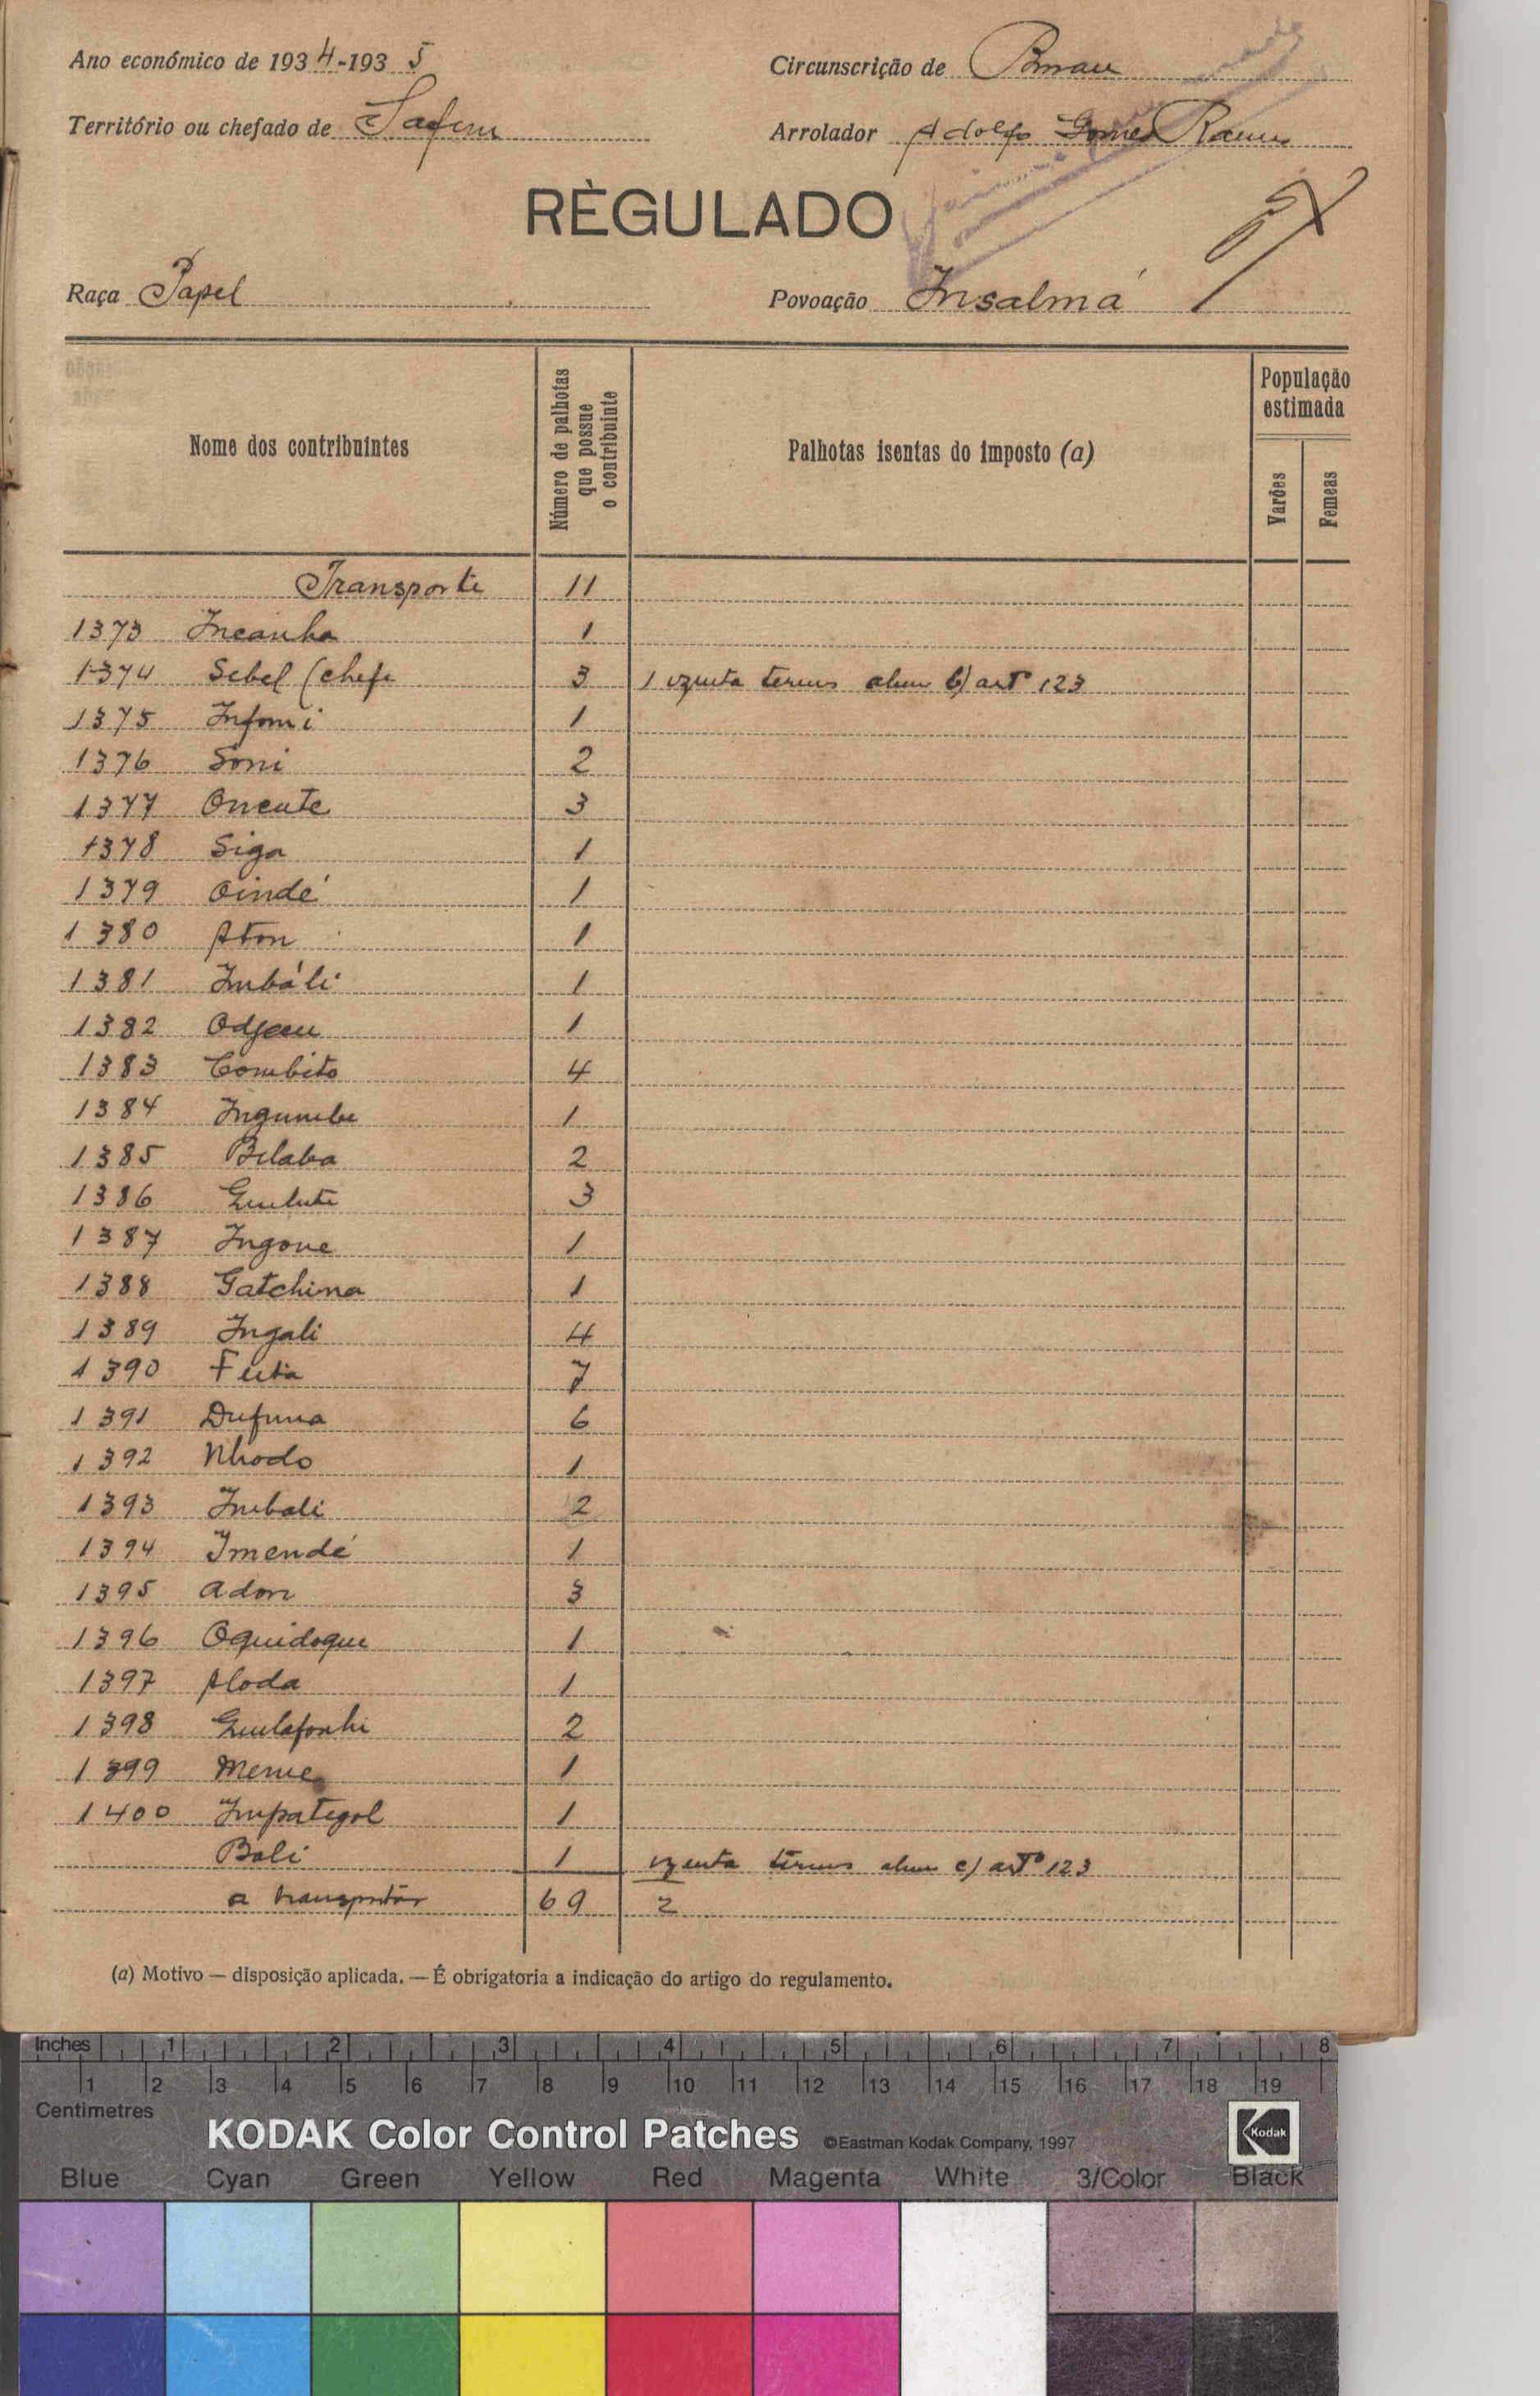 Ano económico de 1934-1935
Circunscrição de Bissau
Território ou chefado de Safim
Arrolador Adolfo Gomes Ramos
RÈGULADO
Raça Papel
Povoação Insalmá
Nome dos contribuintes
Número de palhotas que possue o contribuinte
Palhotas isentas do imposto (a)
População estimada
Varões
Femeas
Transporte 11
1373 Incanha 1
1374 Sebel (chefe 3 1 izenta termos alin b) artº 123
1375 Infomi 1
1376 Soni 2
1377 Oncute 3
1378 Siga 1
1379 Oindé 1
1380 Aton 1
1381 Imbáli 1
1382 1
1383 Combito 4
1384 Ingumbe 1
1385 Bilaba 2
1386 3
1387 Ingone 1
1388 Gatchina 1
1389 Ingali 4
1390 Feita 7
1391 Dufuna 6
1392 Nhodo 1
1393 Imbali 2
1394 Imendé 1
1395 Adon 3
1396 Oquidoque 1
1397 Aloda 1
1398 2
1399 Meme 1
1400 Impategol 1
Bali 1 izenta termos alin c) artº 123
a transportar 69 2
(a) Motivo — disposição aplicada. — É obrigatoria a indicação do artigo do regulamento.
Inches 1 2 3 4 5 6 7 8
1 2 3 4 5 6 7 8 9 10 11 12 13 14 15 16 17 18 19
Centimetres
KODAK Color Control Patches ©Eastman Kodak Company, 1997 Kodak
Blue Cyan Green Yellow Red Magenta White 3/Color Black